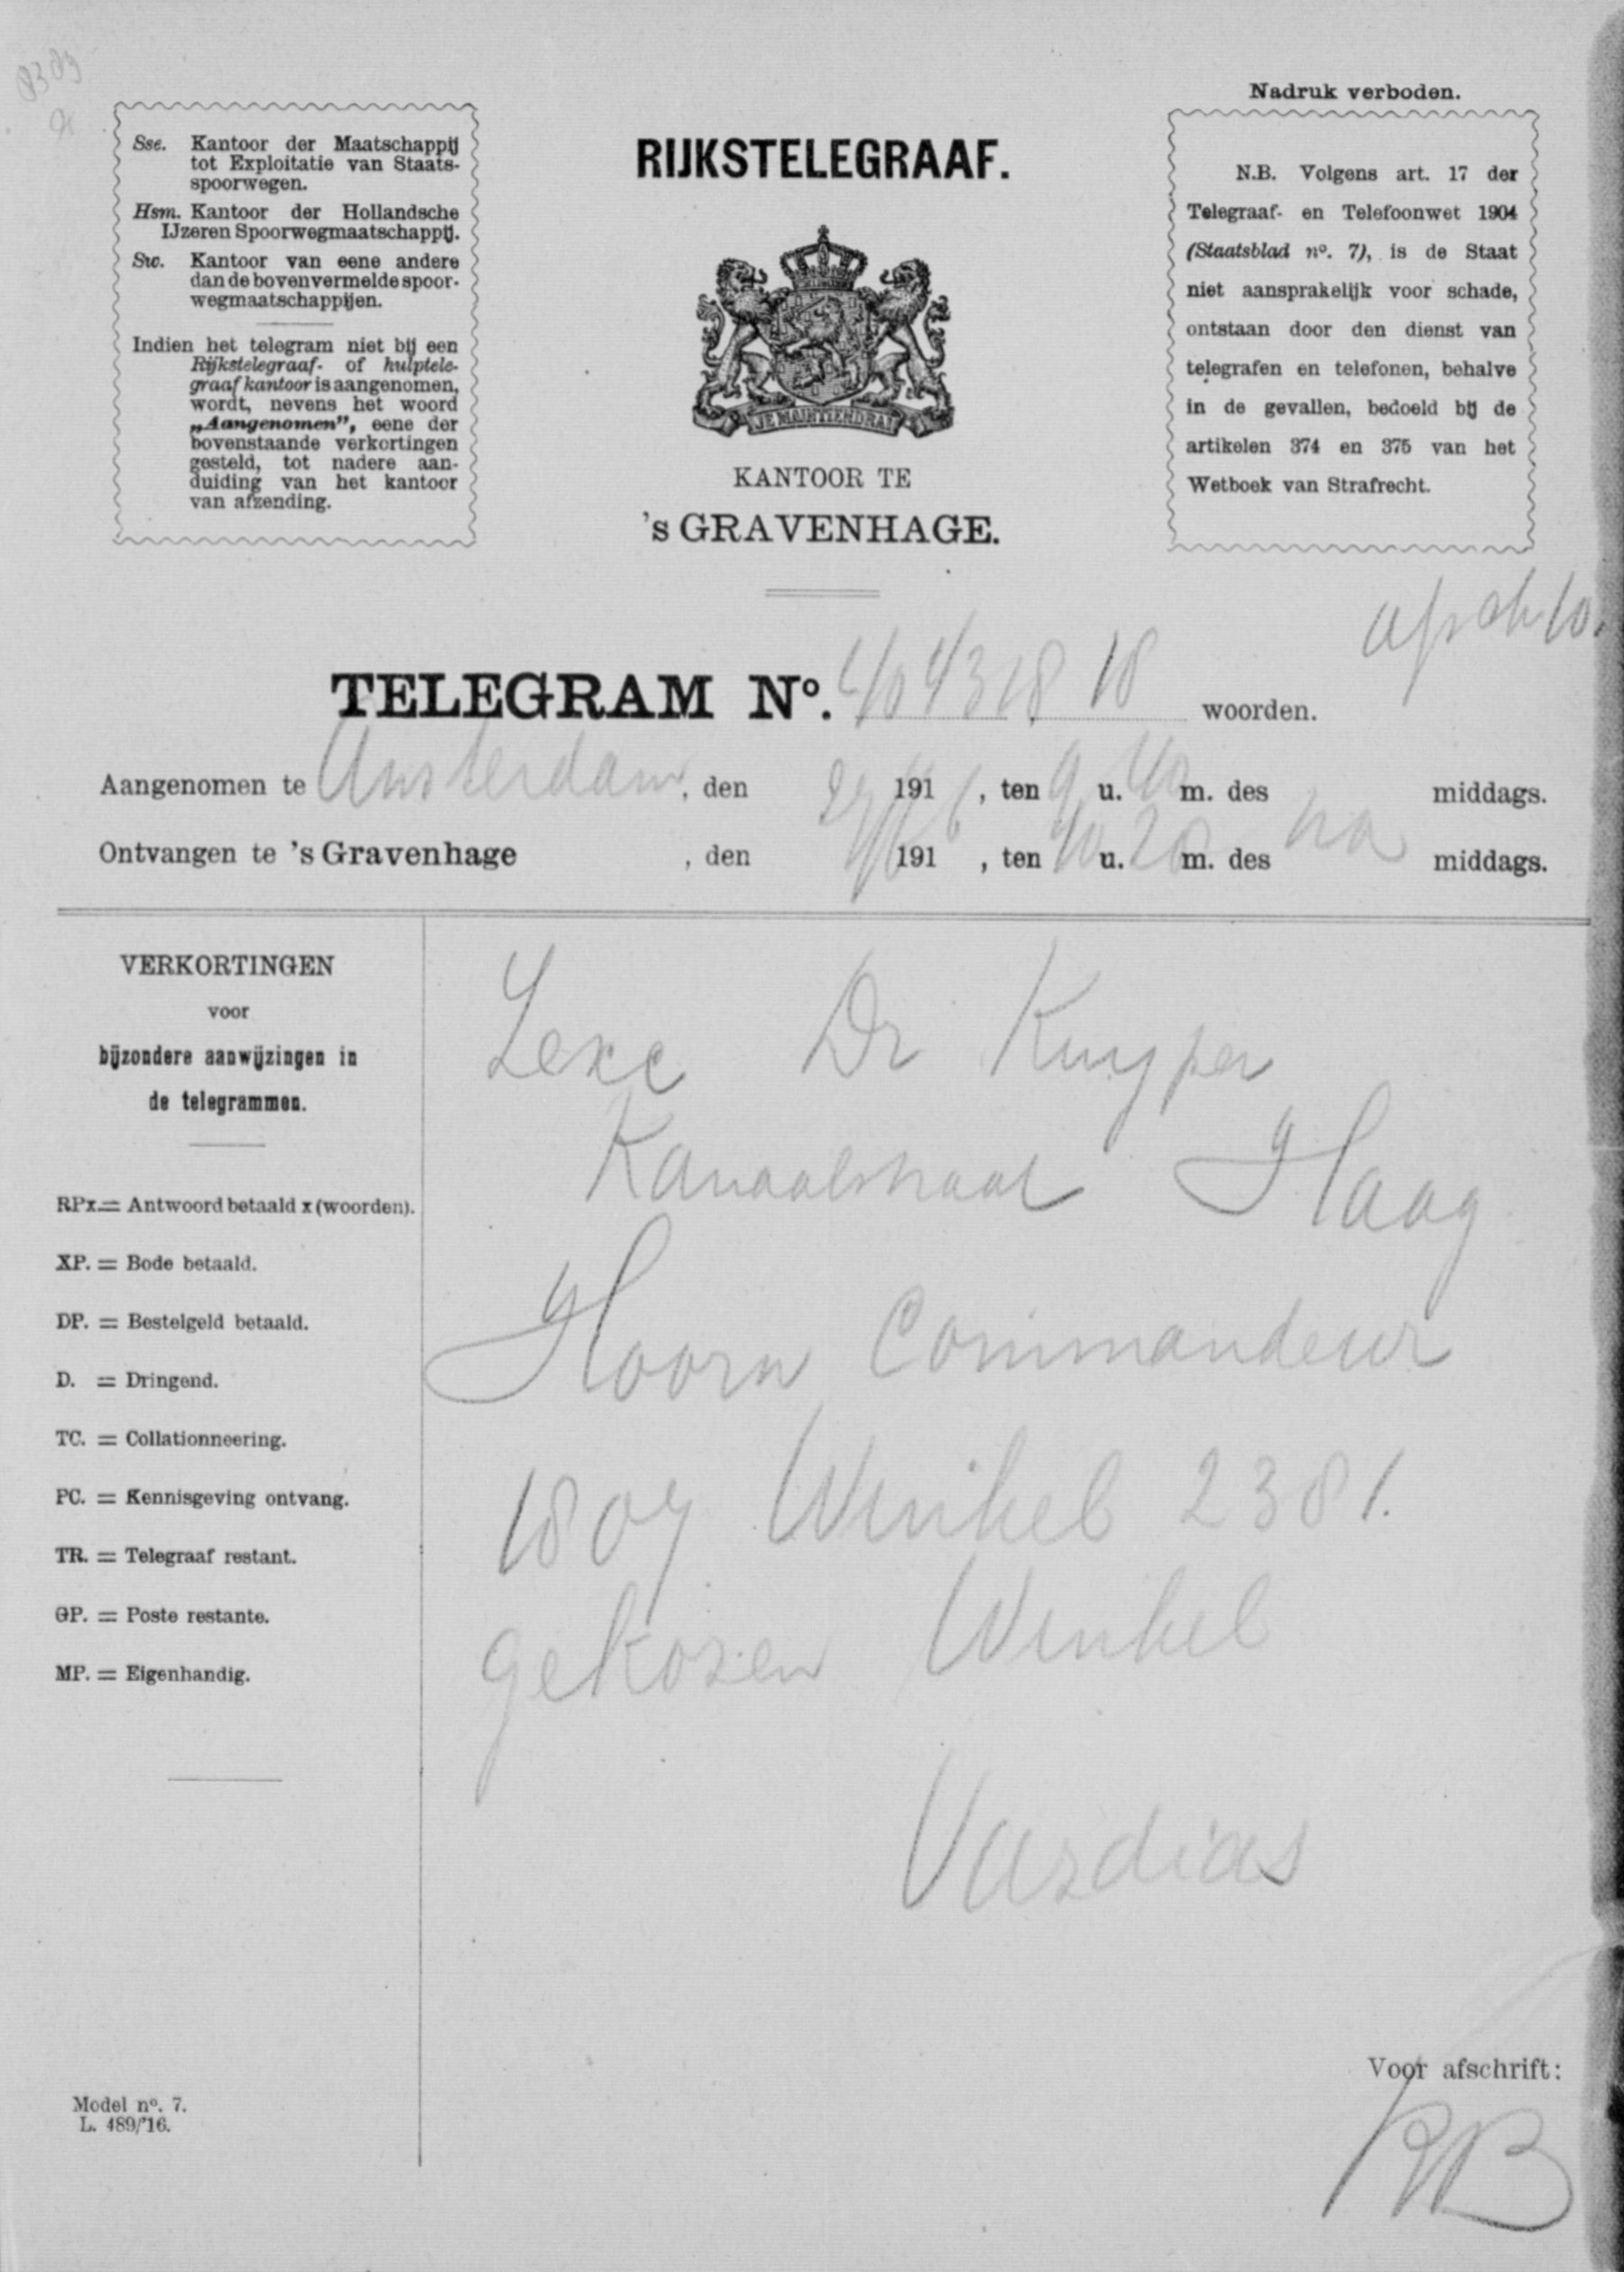 8389
Nadruk verboden.
Sse. Kantoor der Maatschappij
tot Exploitatie van Staats-
spoorwegen.
Hsm. Kantoor der Hollandsche
IJzeren Spoorwegmaatschappij.
Sw. Kantoor van eene andere
dan de bovenvermelde spoor-
wegmaatschappijen.
Indien het telegram niet bij een
Rijkstelegraaf- of hulptele-
graafkantoor is aangenomen,
wordt, nevens het woord
„Aangenomen”, eene der
bovenstaande verkortingen
gesteld, tot nadere aan-
duiding van het kantoor
van afzending.
RIJKSTELEGRAAF.
JE MAINTIENDRAI
KANTOOR TE
's GRAVENHAGE.
N.B. Volgens art. 17 der
Telegraaf- en Telefoonwet 1904
(Staatsblad no. 7), is de Staat
niet aansprakelijk voor schade,
ontstaan door den dienst van
telegrafen en telefonen, behalve
in de gevallen, bedoeld bij de
artikelen 374 en 375 van het
Wetboek van Strafrecht.
TELEGRAM No. 18 woorden.
Aangenomen te Amsterdam, den 191 6, ten 9 u. 40 m. des middags.
Ontvangen te 's Gravenhage, den 191, ten 10 u. 20 m. des na middags.
VERKORTINGEN
voor
bijzondere aanwijzingen in
de telegrammen.
RPx.= Antwoord betaald x (woorden).
XP. = Bode betaald.
DP. = Bestelgeld betaald.
D. = Dringend.
TC. = Collationneering.
PC. = Kennisgeving ontvang.
TR. = Telegraaf restant.
GP. = Poste restante.
MP. = Eigenhandig.
Zexc Dr Kuyper
Kanaalstraat Haag
Hoorn Commandeur
1807 Winkel 2381.
gekozen Winkel
Vasdias
Voor afschrift:
Model no. 7.
L. 489/'16.